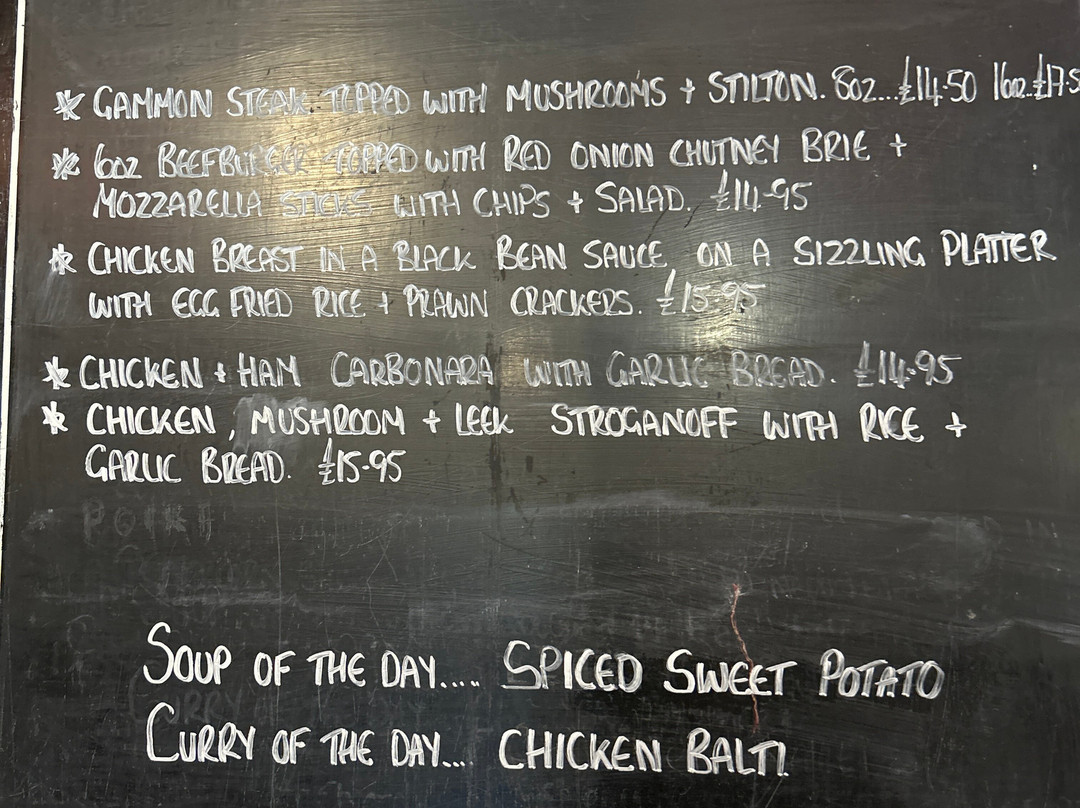 * GAMMON STEAK TOPPED WITH MUSHROOMS + STILTON. 8oz...£14.50 16oz..£17.5
* 6oz BEEFBURGER TOPPED WITH RED ONION CHUTNEY BRIE +
MOZZARELLA STICKS WITH CHIPS + SALAD. £14.95
* CHICKEN BREAST IN A BLACK BEAN SAUCE ON A SIZZLING PLATTER
WITH EGG FRIED RICE + PRAWN CRACKERS. £15.95
* CHICKEN + HAM CARBONARA WITH GARLIC BREAD. £14.95
* CHICKEN, MUSHROOM + LEEK STROGANOFF WITH RICE +
GARLIC BREAD. £15.95
SOUP OF THE DAY.... SPICED SWEET POTATO
CURRY OF THE DAY... CHICKEN BALTI.